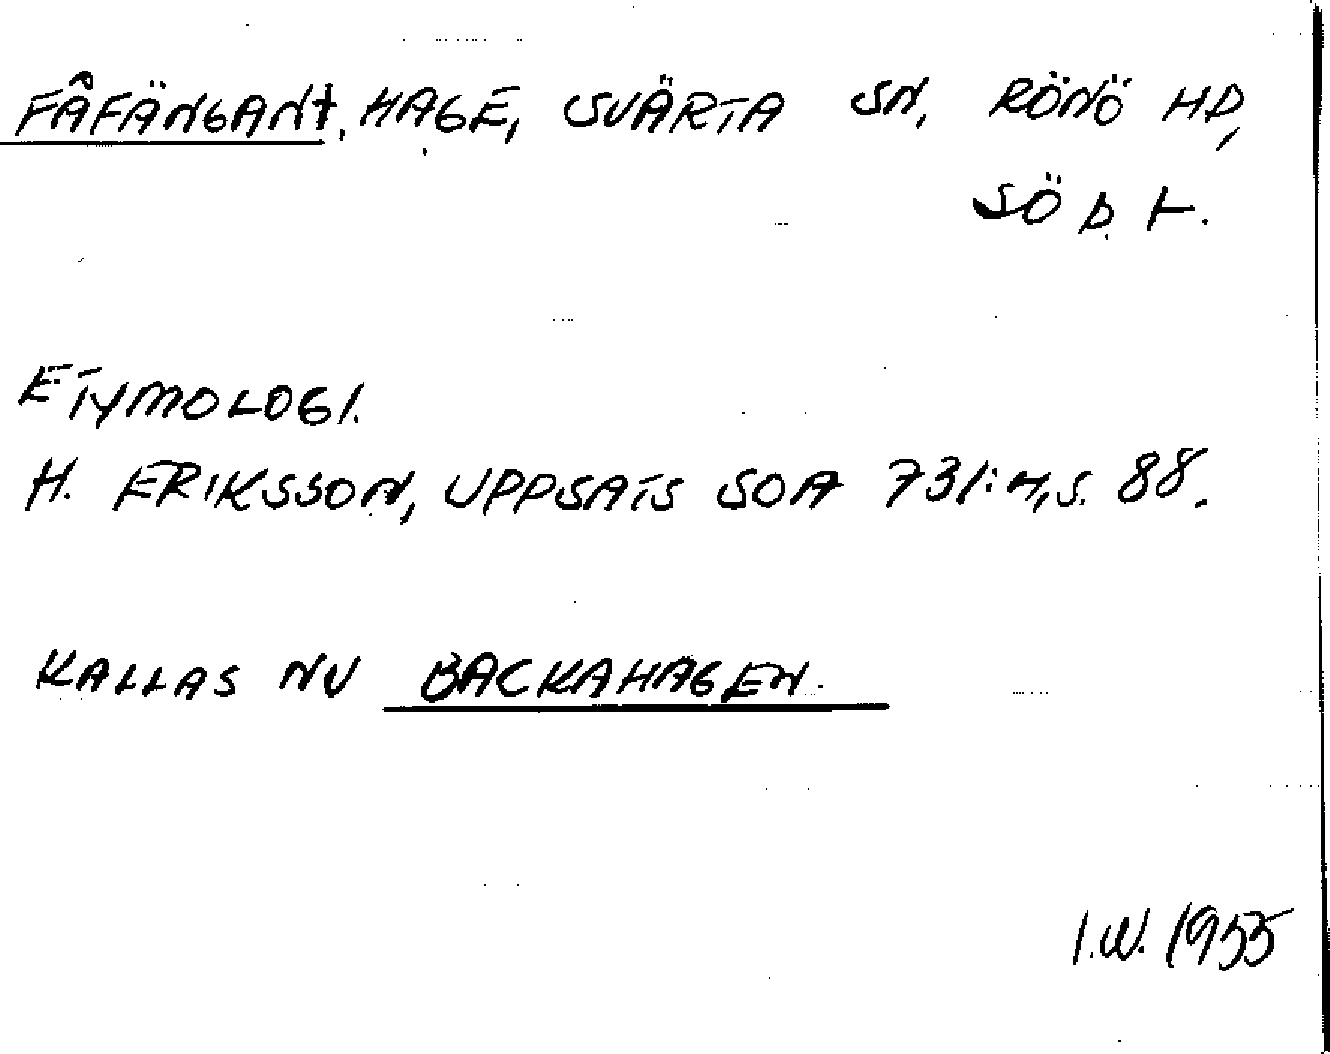 FÅFÄNGAN†, HAGE, SVÄRTA SN, RÖNÖ HD,
SÖD. L.
ETYMOLOGI.
H. ERIKSSON, UPPSATS SOA 731:4, S. 88.
KALLAS NU BACKAHAGEN.
I.W. 1955